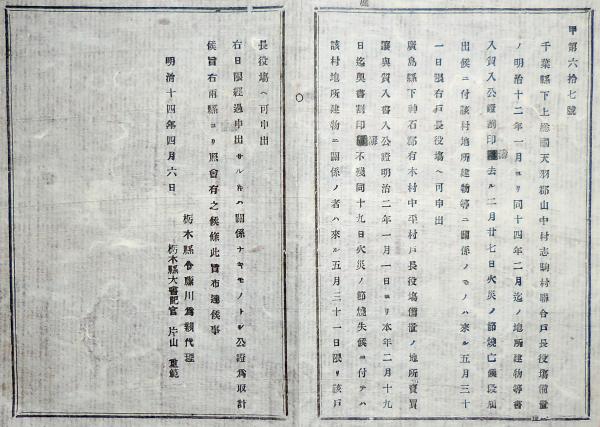 甲第六拾七號
千葉縣下上總國天羽郡山中村志駒村聯合戸長役塲備置
ノ明治十二年一月ヨリ同十四年二月迄ノ地所建物等書
入質入公證割印簿去ル二月廿七日火災ノ節燒亡候段届
出候ニ付該村地所建物等ニ關係ノモノハ來ル五月三十
一日限右戸長役塲ヘ可申出
廣島縣下神石郡有木村中平村戸長役塲備置ノ地所賣買
讓與質入書入公證明治二年一月一日ヨリ本年二月十九
日迄奥書割印簿不殘同十九日火災ノ節燒失候ニ付テハ
該村地所建物ニ關係ノ者ハ來ル五月三十一日限リ該戸
長役塲ヘ可申出
右日限經過申出サルモノハ關係ナキモノトシ公證爲取計
候旨右兩縣ヨリ照會有之候條此旨布達候事
明治十四年四月六日
栃木縣令藤川爲親代理
栃木縣大書記官 片山重範